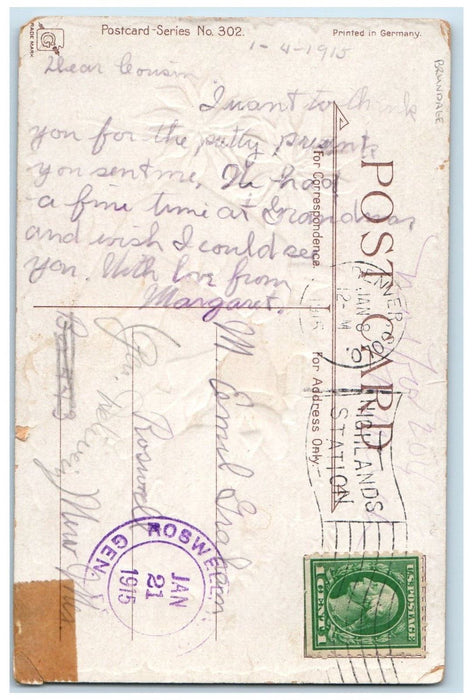 TRADE MARK
G
Postcard-Series No. 302.
Printed in Germany.
1-4-1915
BRUNDAGE
Dear Cousin
I want to thank
you for the pretty present
you sent me. We had
a fine time at Grandmas
and wish I could see
you. With love from
Margaret.
POST CARD
For Correspondence
For Address Only.
DENVER COLO.
JAN 8
12-M
1915
HIGHLANDS
STATION
M Emil
Roswell
New Mex
Gen. Delivery
ROSWELL
GEN.
JAN
21
1915
U.S. POSTAGE
1 CENT 1